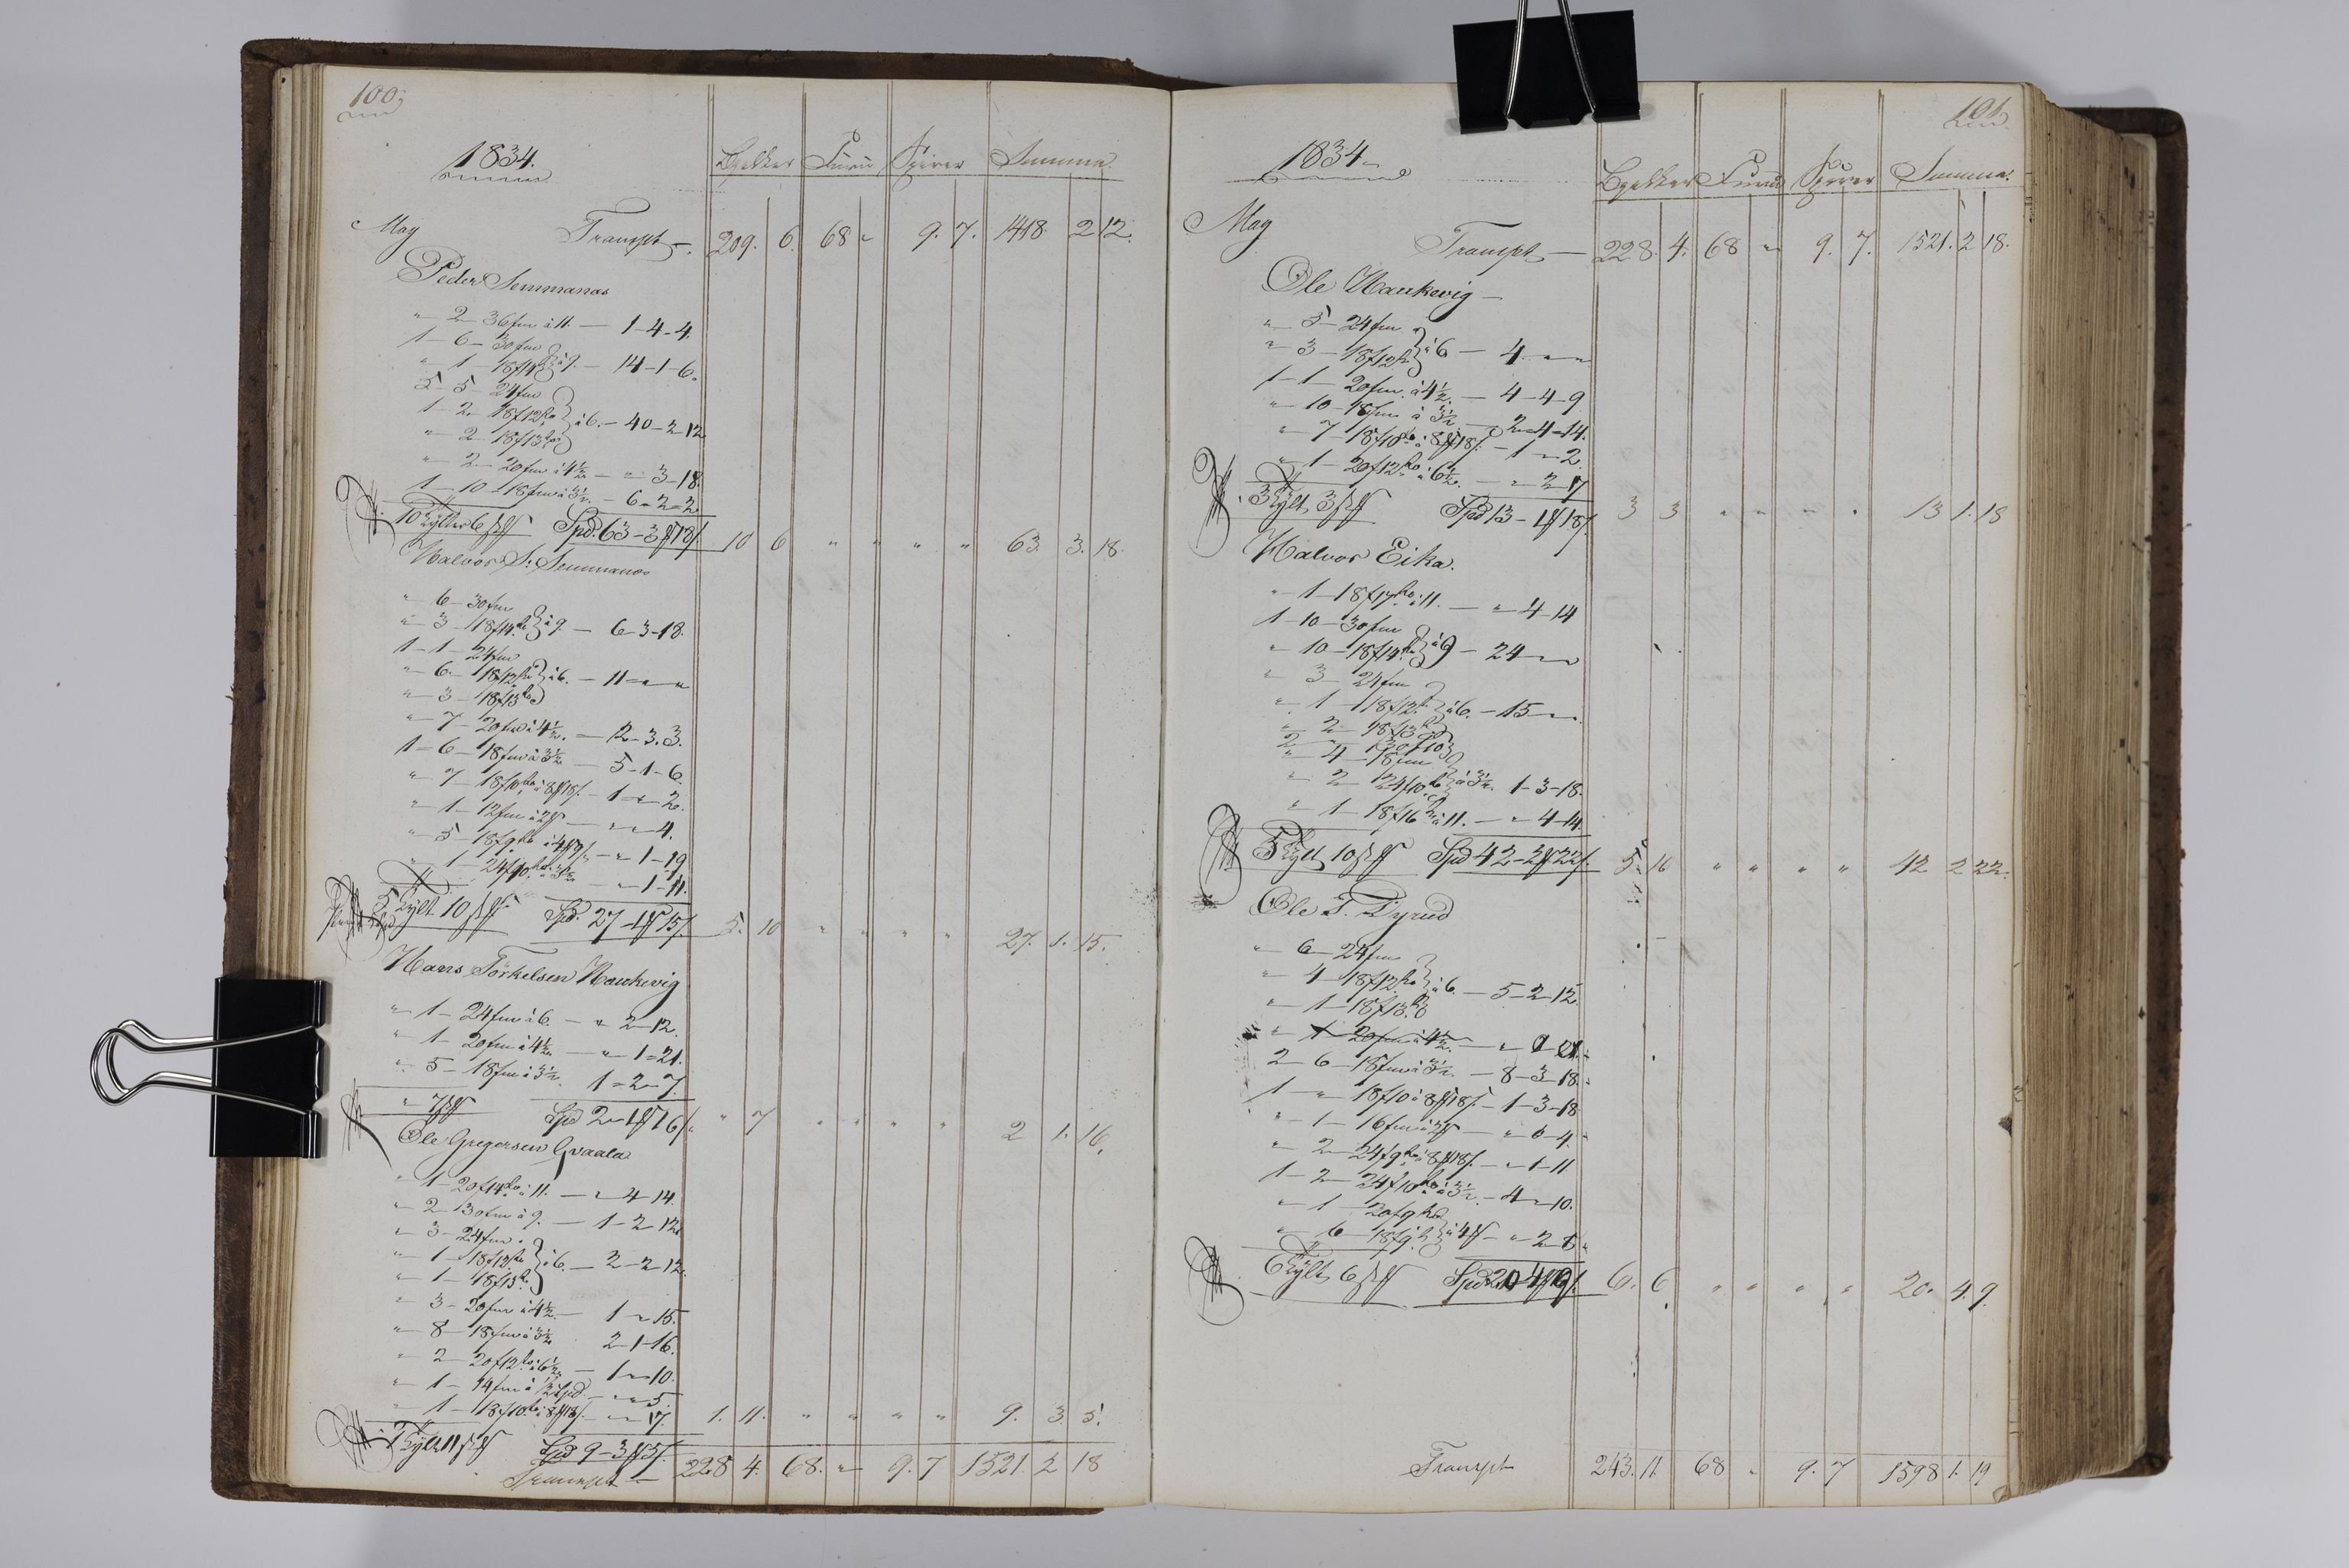 100
1834.
Bjelker Furu Spirer Summa
May Transpt — 209. 6. 68 " 9. 7. 1418. 2 12.
Peder Semmanas
" 2 — 36 fm à 11. — 1-4-4.
1 — 6 — 30 fm
" 1 — 18f14 à 9. — 14-1-6.
5 — 5 — 24 fm
1 — 2 — 18f12
" 2 — 18f13 à 6. — 40-2-12
" 2 — 20 fm à 4½ — " 3-18.
1 — 10 — 18 fm à 3½. — 6-2-2
10 Tylter 6 Spd. 63-3 18 10 6 " " " " 63. 3. 18.
Halvor S. Semmanas
" 6 — 30 fm
" 3 — 18f14 à 9. — 6-3-18.
1 — 1 — 24 fm
" 6 — 18f12 à 6. — 11 " "
" 3 — 18f13
" 7 — 20 fm à 4½. — 2-3.3.
1 — 6 — 18 fm à 3½ — 5-1-6.
" 7 — 18f10 à 8 18 — 1 " 2.
" 1 — 12 fm à 2 — " " 4.
" 5 — 18f9 à 4 — " 1-19
" 1 — 24f10 à 3½ — " 1-11.
5 Tylt 10 Spd. 27-1 15 5. 10 " " " " 27. 1. 15.
Hans Törkelsen Haukevig
" 1 — 24 fm à 6. — " 2-12.
" 1 — 20 fm à 4½ — " 1-21.
" 5 — 18 fm à 3½. 1-2-7.
" 7 Spd 2-1 16 " 7 " " " " 2 1. 16.
Ole Gregersen Gvaala
" 1 — 20f14 à 11. — " 4 14.
" 2 — 30 fm à 9. — 1-2 12.
" 3 — 24 fm
" 1 — 18f12 à 6. — 2-2-12.
" 1 — 18f13
" 3 — 20 fm à 4½ — 1 " 15.
" 8 — 18 fm à 3½ 2-1-16.
" 2 — 20f12 à 6½ — 1 " 10.
" 1 — 14 fm à — " " 5.
" 1 — 18f10 à 8 18 — " " 17. 1. 11. " " " " 9. 3. 5.
1 Tylt 11 Spd 9-3 5
Transpt — 228 4. 68. " 9. 7 1521. 2 18
101
1834
Bjelker Furu Spirer Summa.
May
Transpt — 228. 4. 68 " 9. 7. 1521. 2 18.
Ole Haukevig
" 5 — 24 fm
" 3 — 18f12 à 6 — 4. " "
1 — 1 — 20 fm à 4½. — 4-4-9
" 10 — 18 fm à 3½ — 2-4-14.
" 7 — 18f10 à 8 18 — 1 " 2.
" 1 — 20f12 à 6½ — " 2-17
3 Tylt 3 Spd 13-1 18 3 3 " " " " 13 1. 18
Halvor Eika.
" 1 — 18f17 à 11. — " 4-14
1 — 10 — 30 fm
" 10 — 18f14 à 9 — 24 " "
" 3 — 24 fm
" 1 — 18f12 à 6. — 15 " "
" 2 — 18f13
" 4 — 18 fm
" 2 — 24f10 à 3½. 1-3-18.
" 1 — 18f16 à 11. — " 4-14.
5 Tylt 10 Spd 42-2 22 5 10 " " " " 42 2 22.
Ole T. Tyrud
" 6 — 24 fm
" 4 — 18f12 à 6. — 5-2-12.
" 1 — 18f13
" 1 20 fm à 4½. —
2 — 6 — 18 fm à 3½. — 8-3-18.
1 — " 18f10 à 8 18 — 1-3-18
" 1 — 16 fm — " 0-4.
" 2 — 24f9 à 8 18 — " 1-11
1 — 2 — 24f10 à 3½. — 4 " 10.
" 1 — 20f9
" 6 — 18f9 à 4 — " 2-8
6 Tylt 6 Spd 20-4 9 6. 6. " " " " 20. 4. 9.
Transpt 243. 11. 68 " 9. 7 1598 1. 19